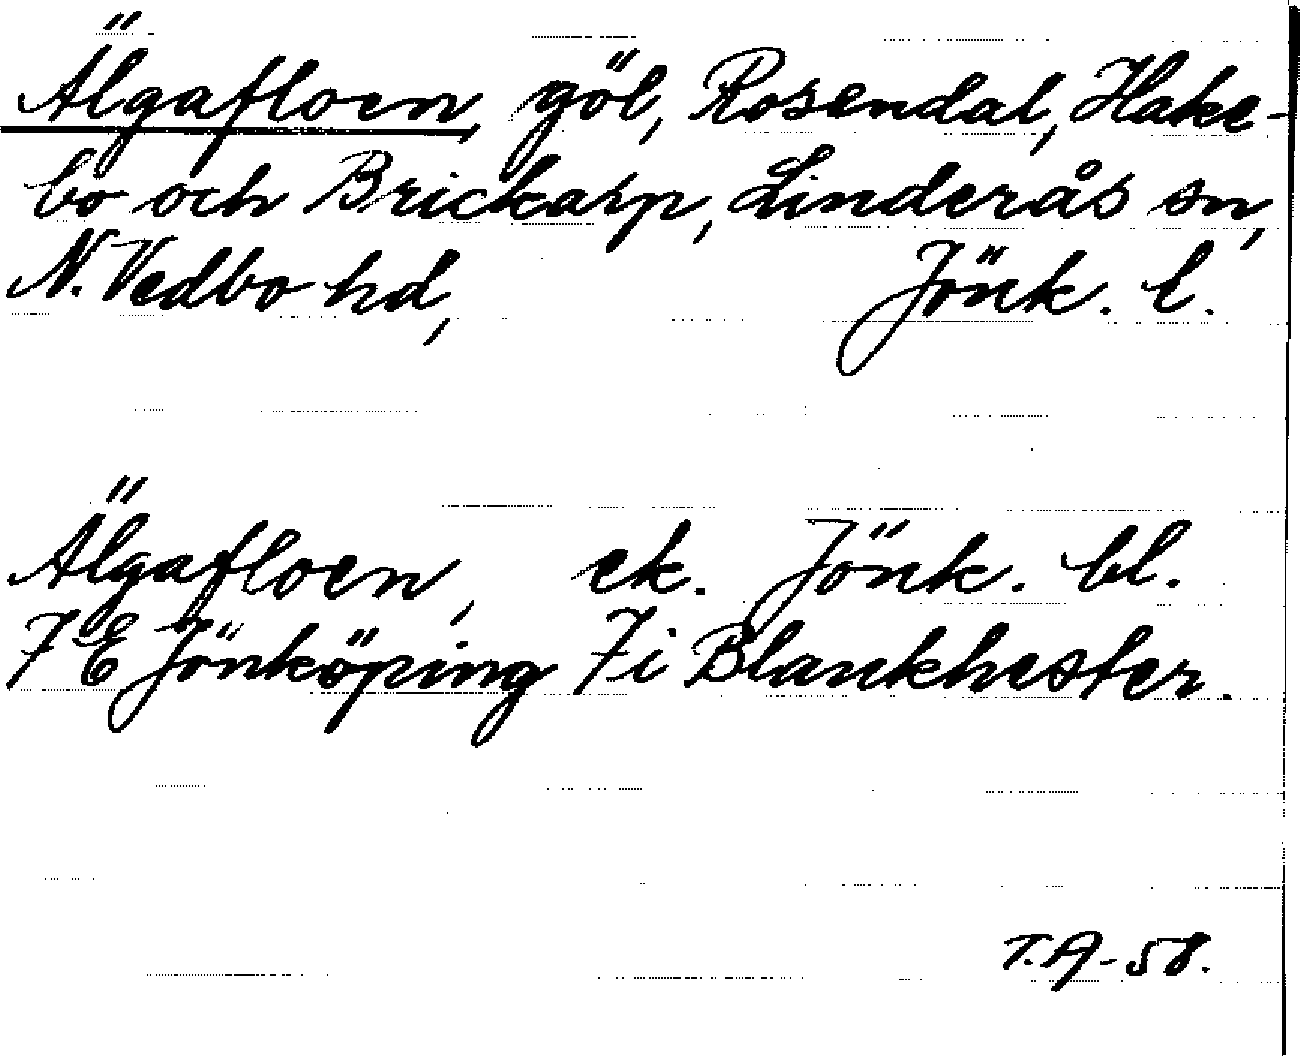 Älgafloen, göl, Rosendal, Hake-
bo och Brickarp, Linderås sn,
N. Vedbo hd, Jönk. l.
Älgafloen, ek. Jönk. bl.
7 E Jönköping 7i Blankhester.
T.A-58.